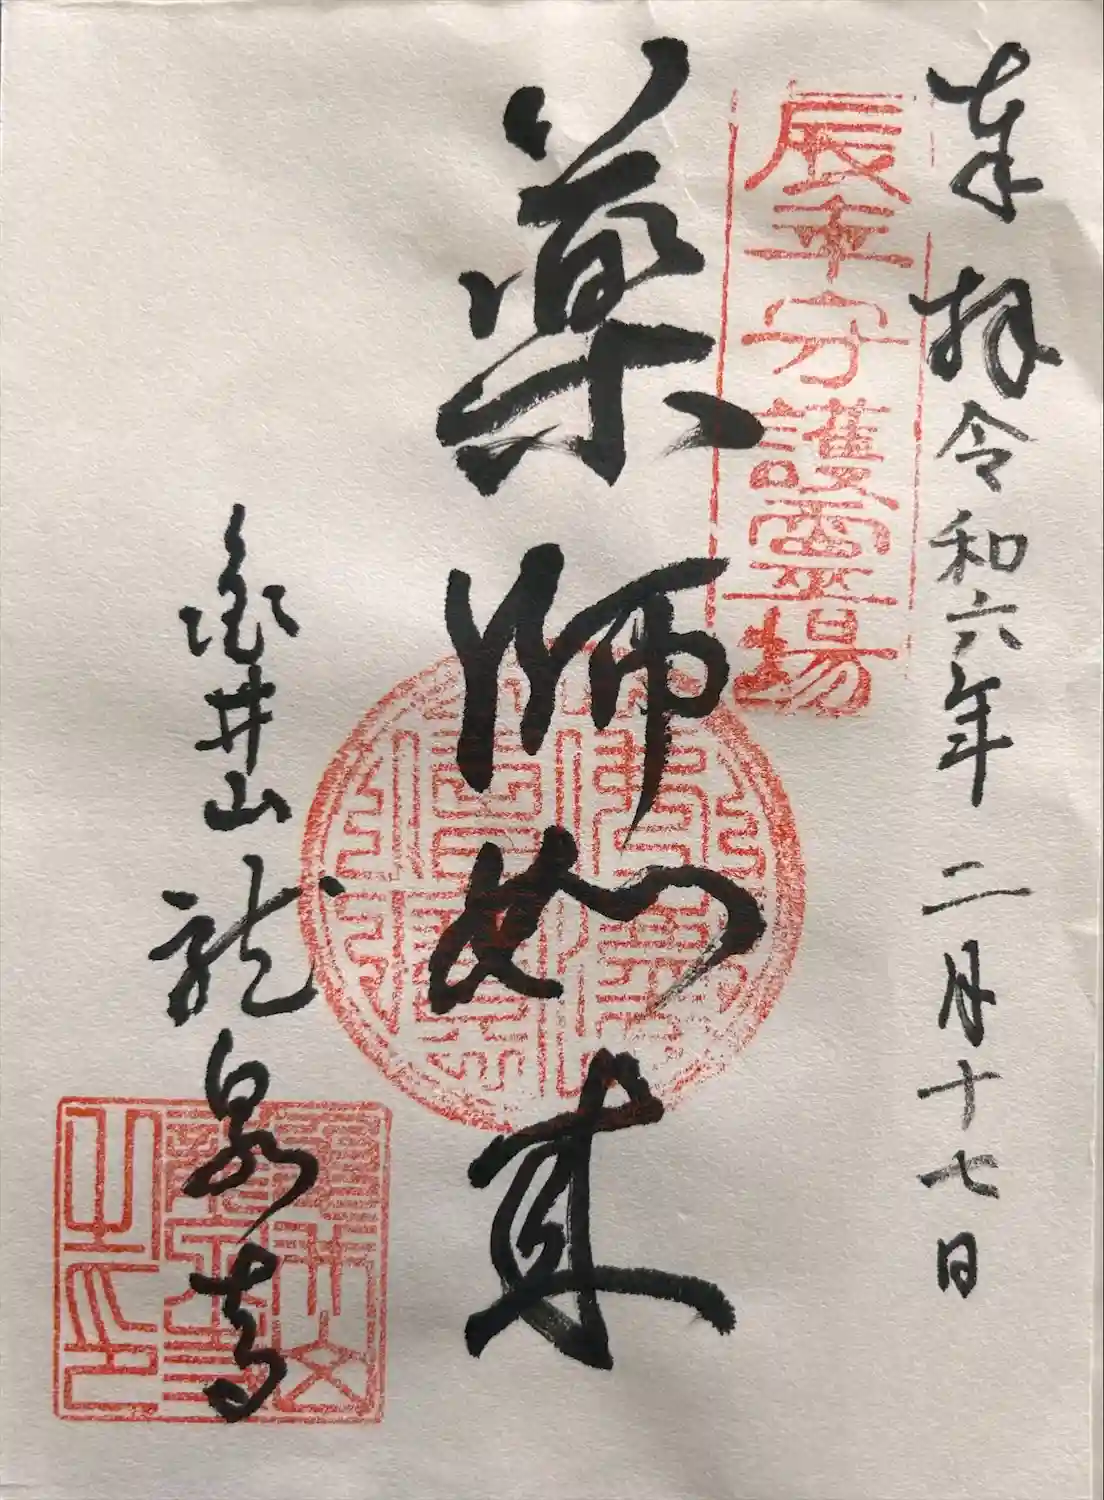 奉拝 令和六年二月十七日
辰年守護霊場
薬師如来
亀井山 龍泉寺